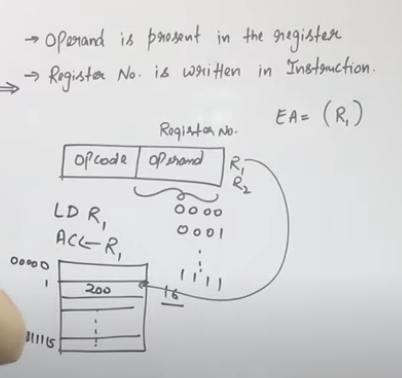 → Operand is present in the register
→ Register No. is written in Instruction.
EA = (R₁)
Register No.
Opcode Operand R₁
R₂
0000
0001
⋮
1111
16
LD R₁
ACC ← R₁
00000
1
200
⋮